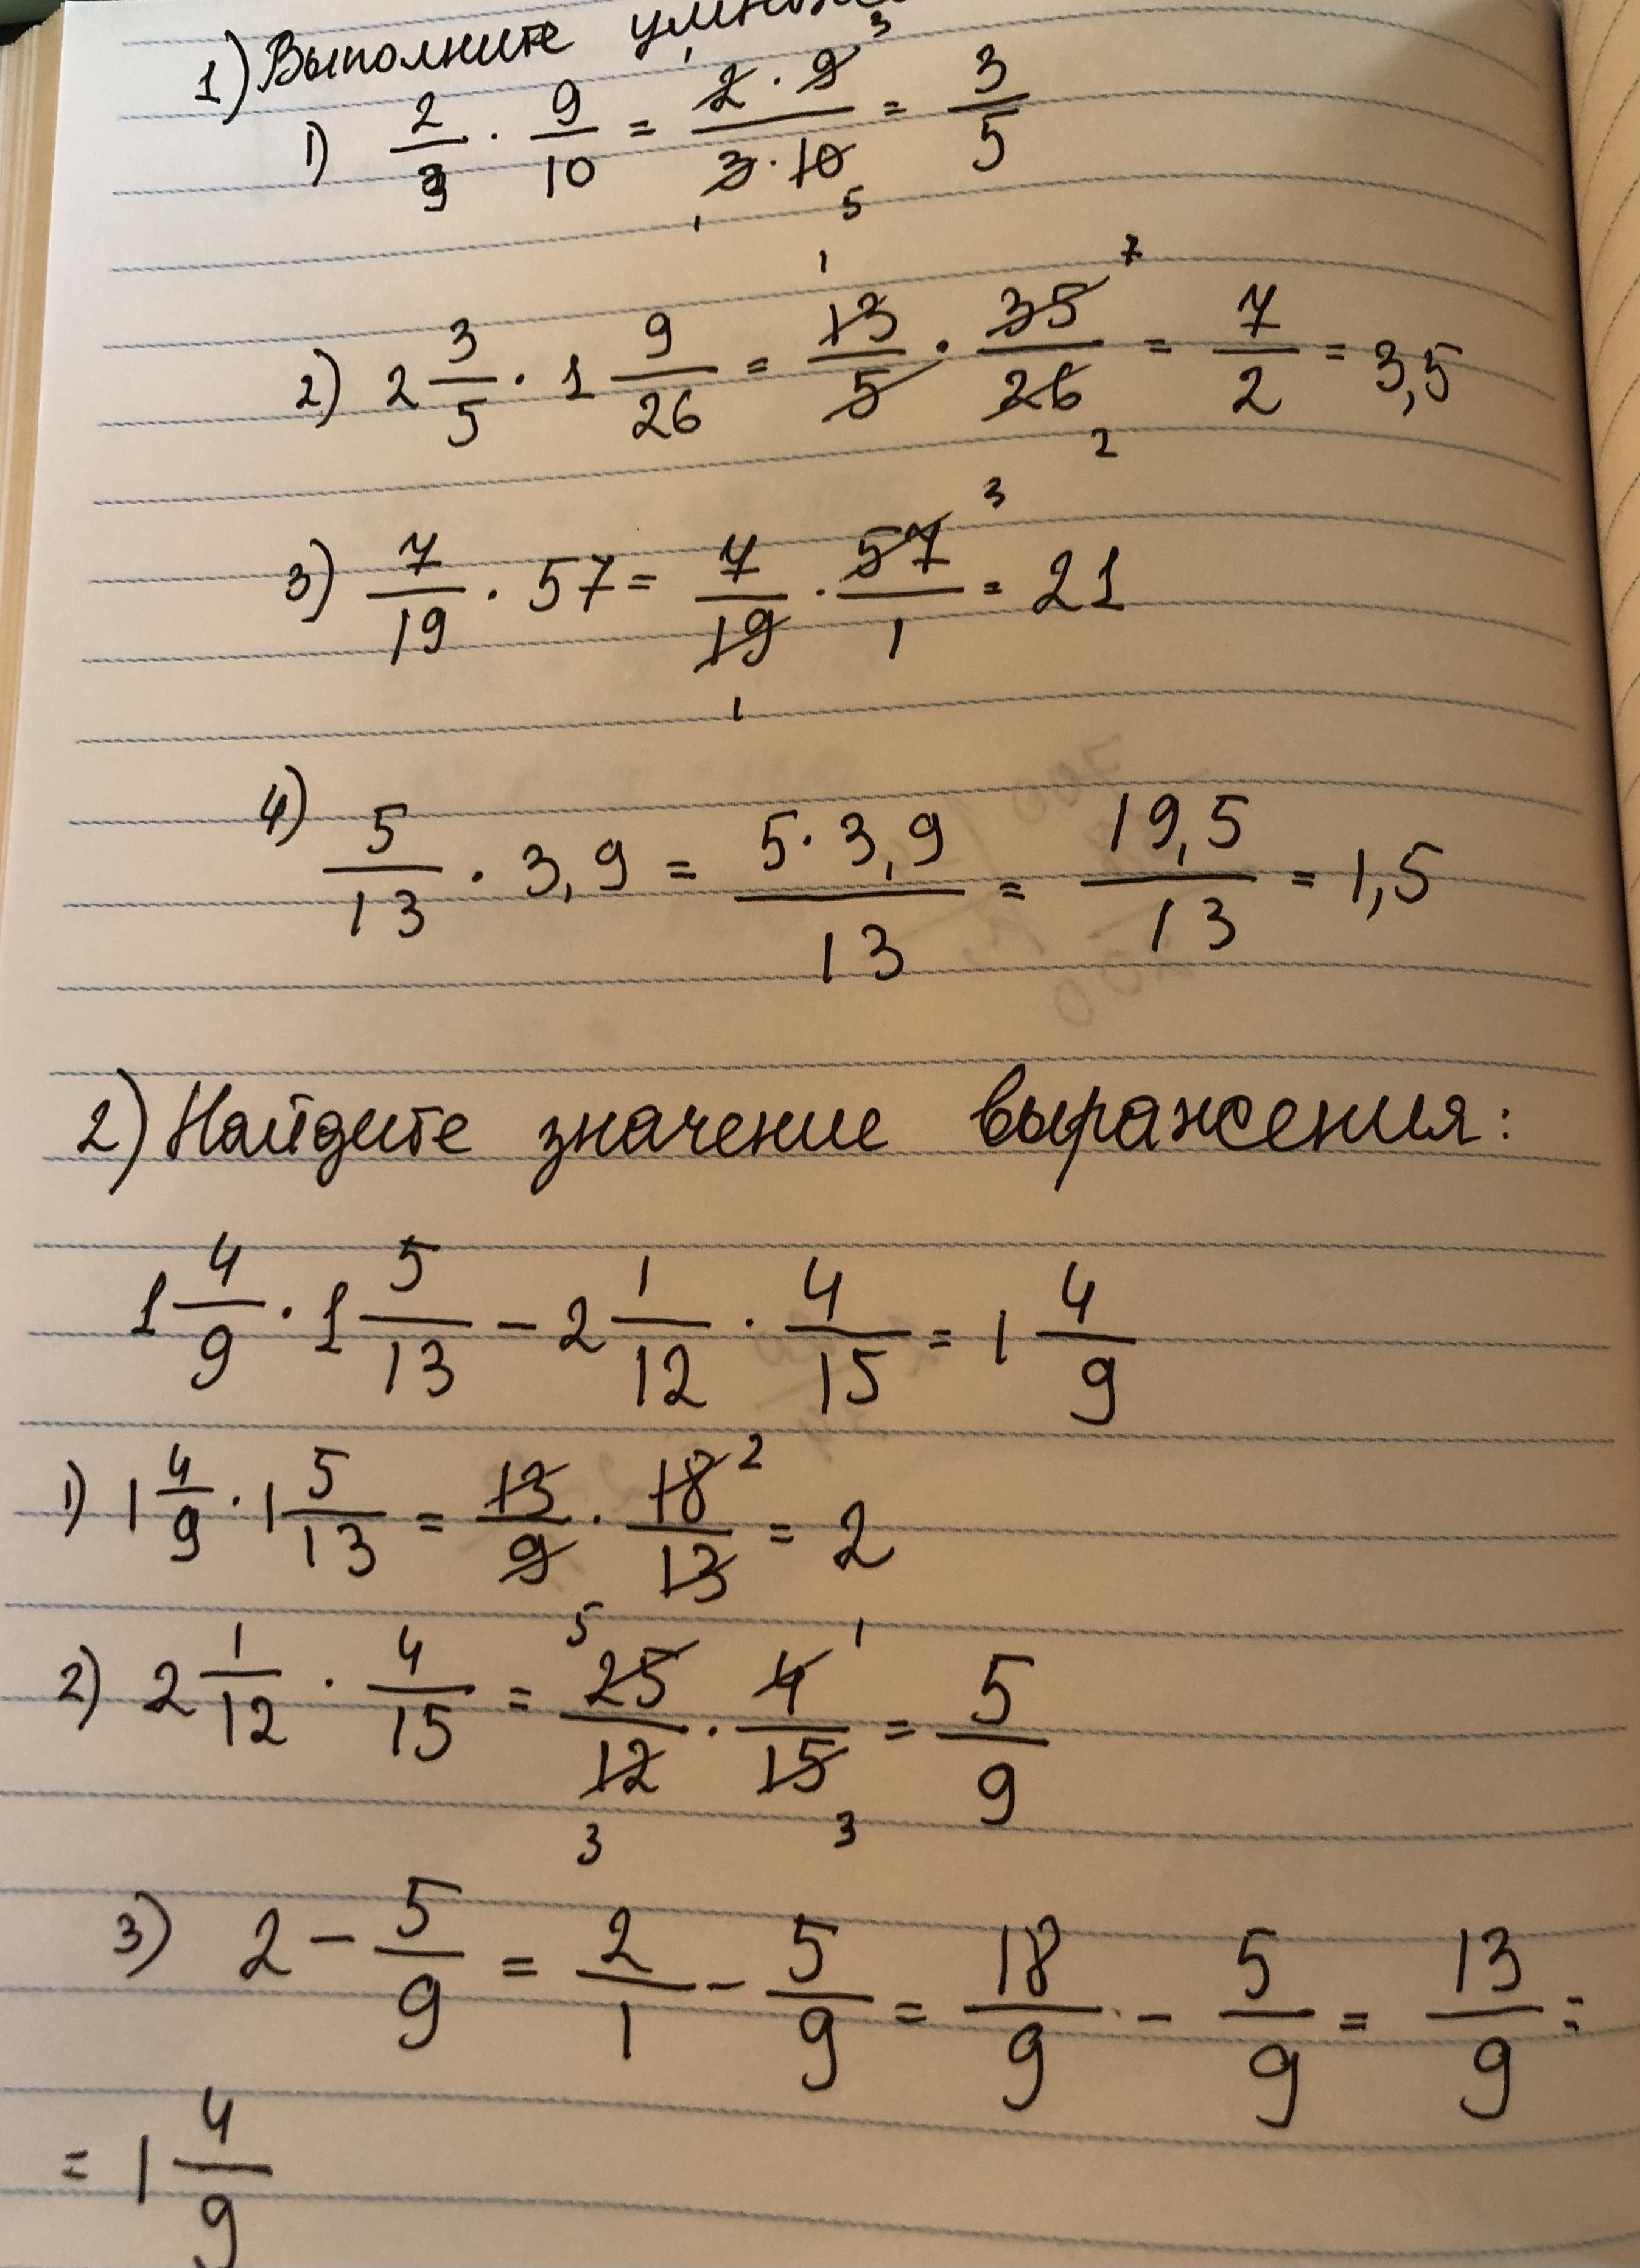 1) Выполните
1) 2/3 · 9/10 = 2·9/3·10 = 3/5
2) 2 3/5 · 1 9/26 = 13/5 · 35/26 = 7/2 = 3,5
3) 7/19 · 57 = 7/19 · 57/1 = 21
4) 5/13 · 3,9 = 5·3,9/13 = 19,5/13 = 1,5
2) Найдите значение выражения:
1 4/9 · 1 5/13 – 2 1/12 · 4/15 = 1 4/9
1) 1 4/9 · 1 5/13 = 13/9 · 18/13 = 2
2) 2 1/12 · 4/15 = 25/12 · 4/15 = 5/9
3) 2 – 5/9 = 2/1 – 5/9 = 18/9 – 5/9 = 13/9 =
= 1 4/9